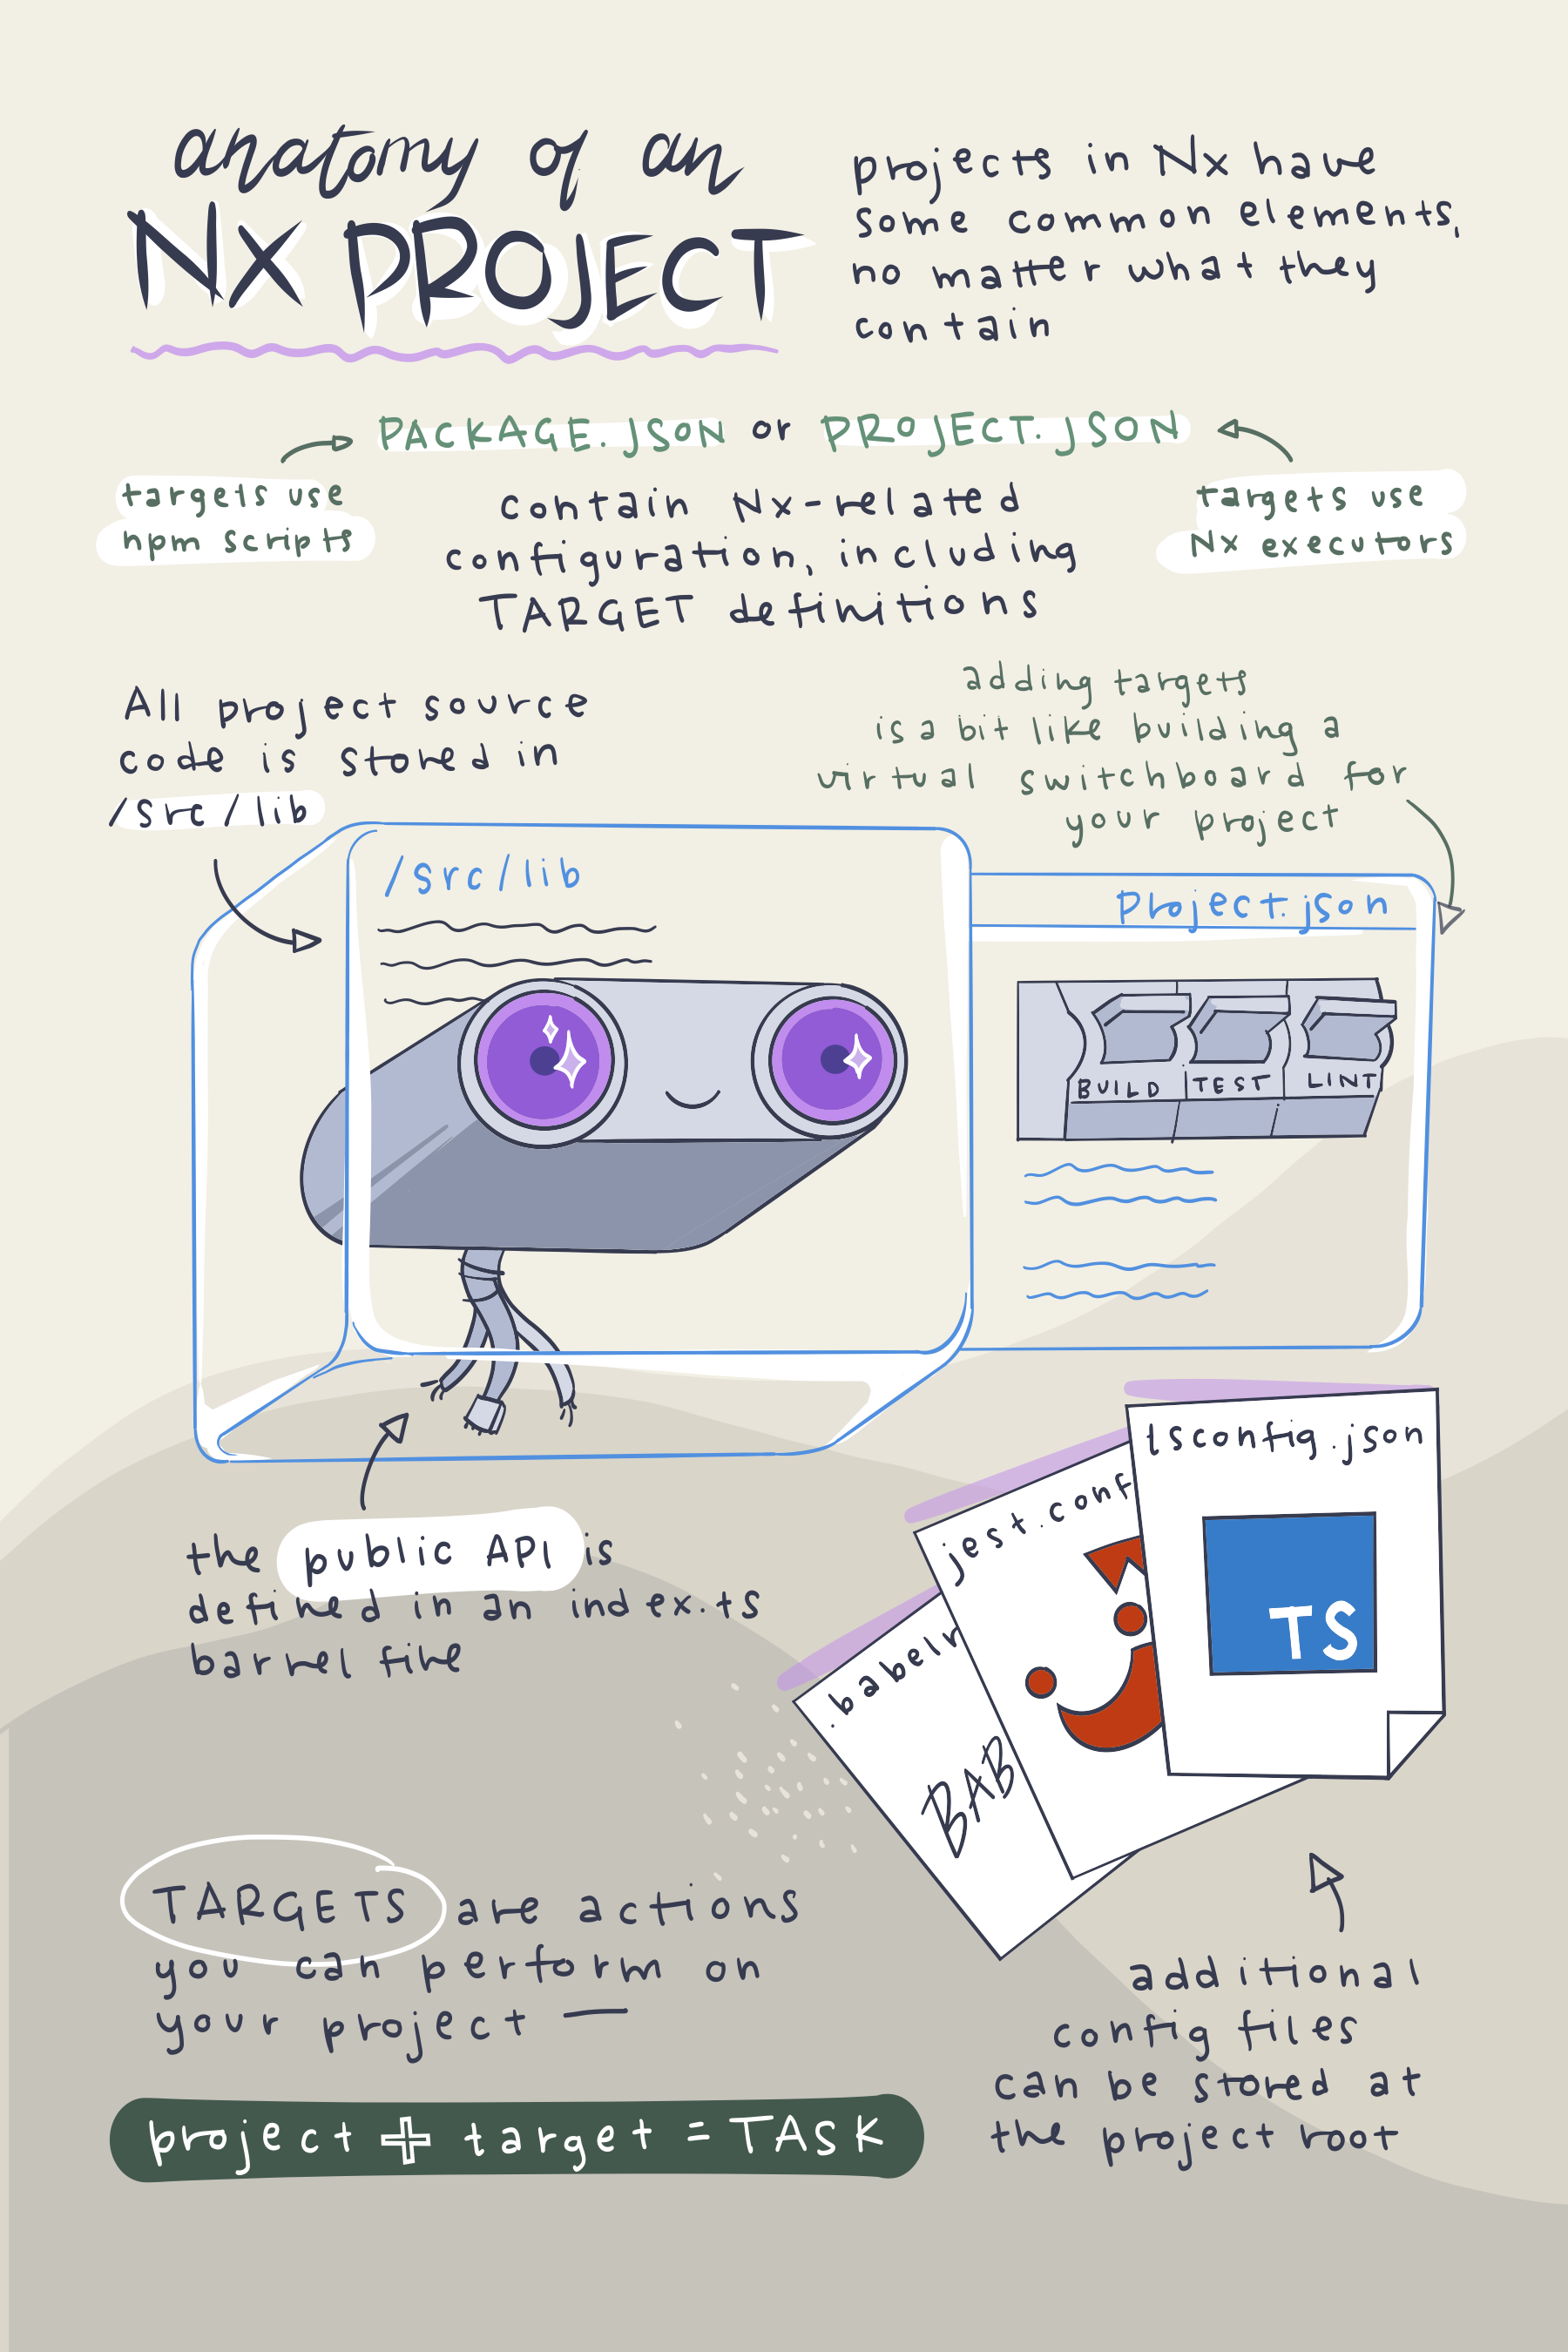 anatomy of an
Nx PROJECT
projects in Nx have
some common elements,
no matter what they
contain
PACKAGE.JSON or PROJECT.JSON
targets use
npm scripts
contain Nx-related
configuration, including
TARGET definitions
targets use
Nx executors
All project source
code is stored in
/src/lib
adding targets
is a bit like building a
virtual switchboard for
your project
/src/lib
Project.json
BUILD TEST LINT
the public API is
defined in an index.ts
barrel file
tsconfig.json
TS
jest.conf
.babelr
BAB
TARGETS are actions
you can perform on
your project —
project + target = TASK
additional
config files
can be stored at
the project root